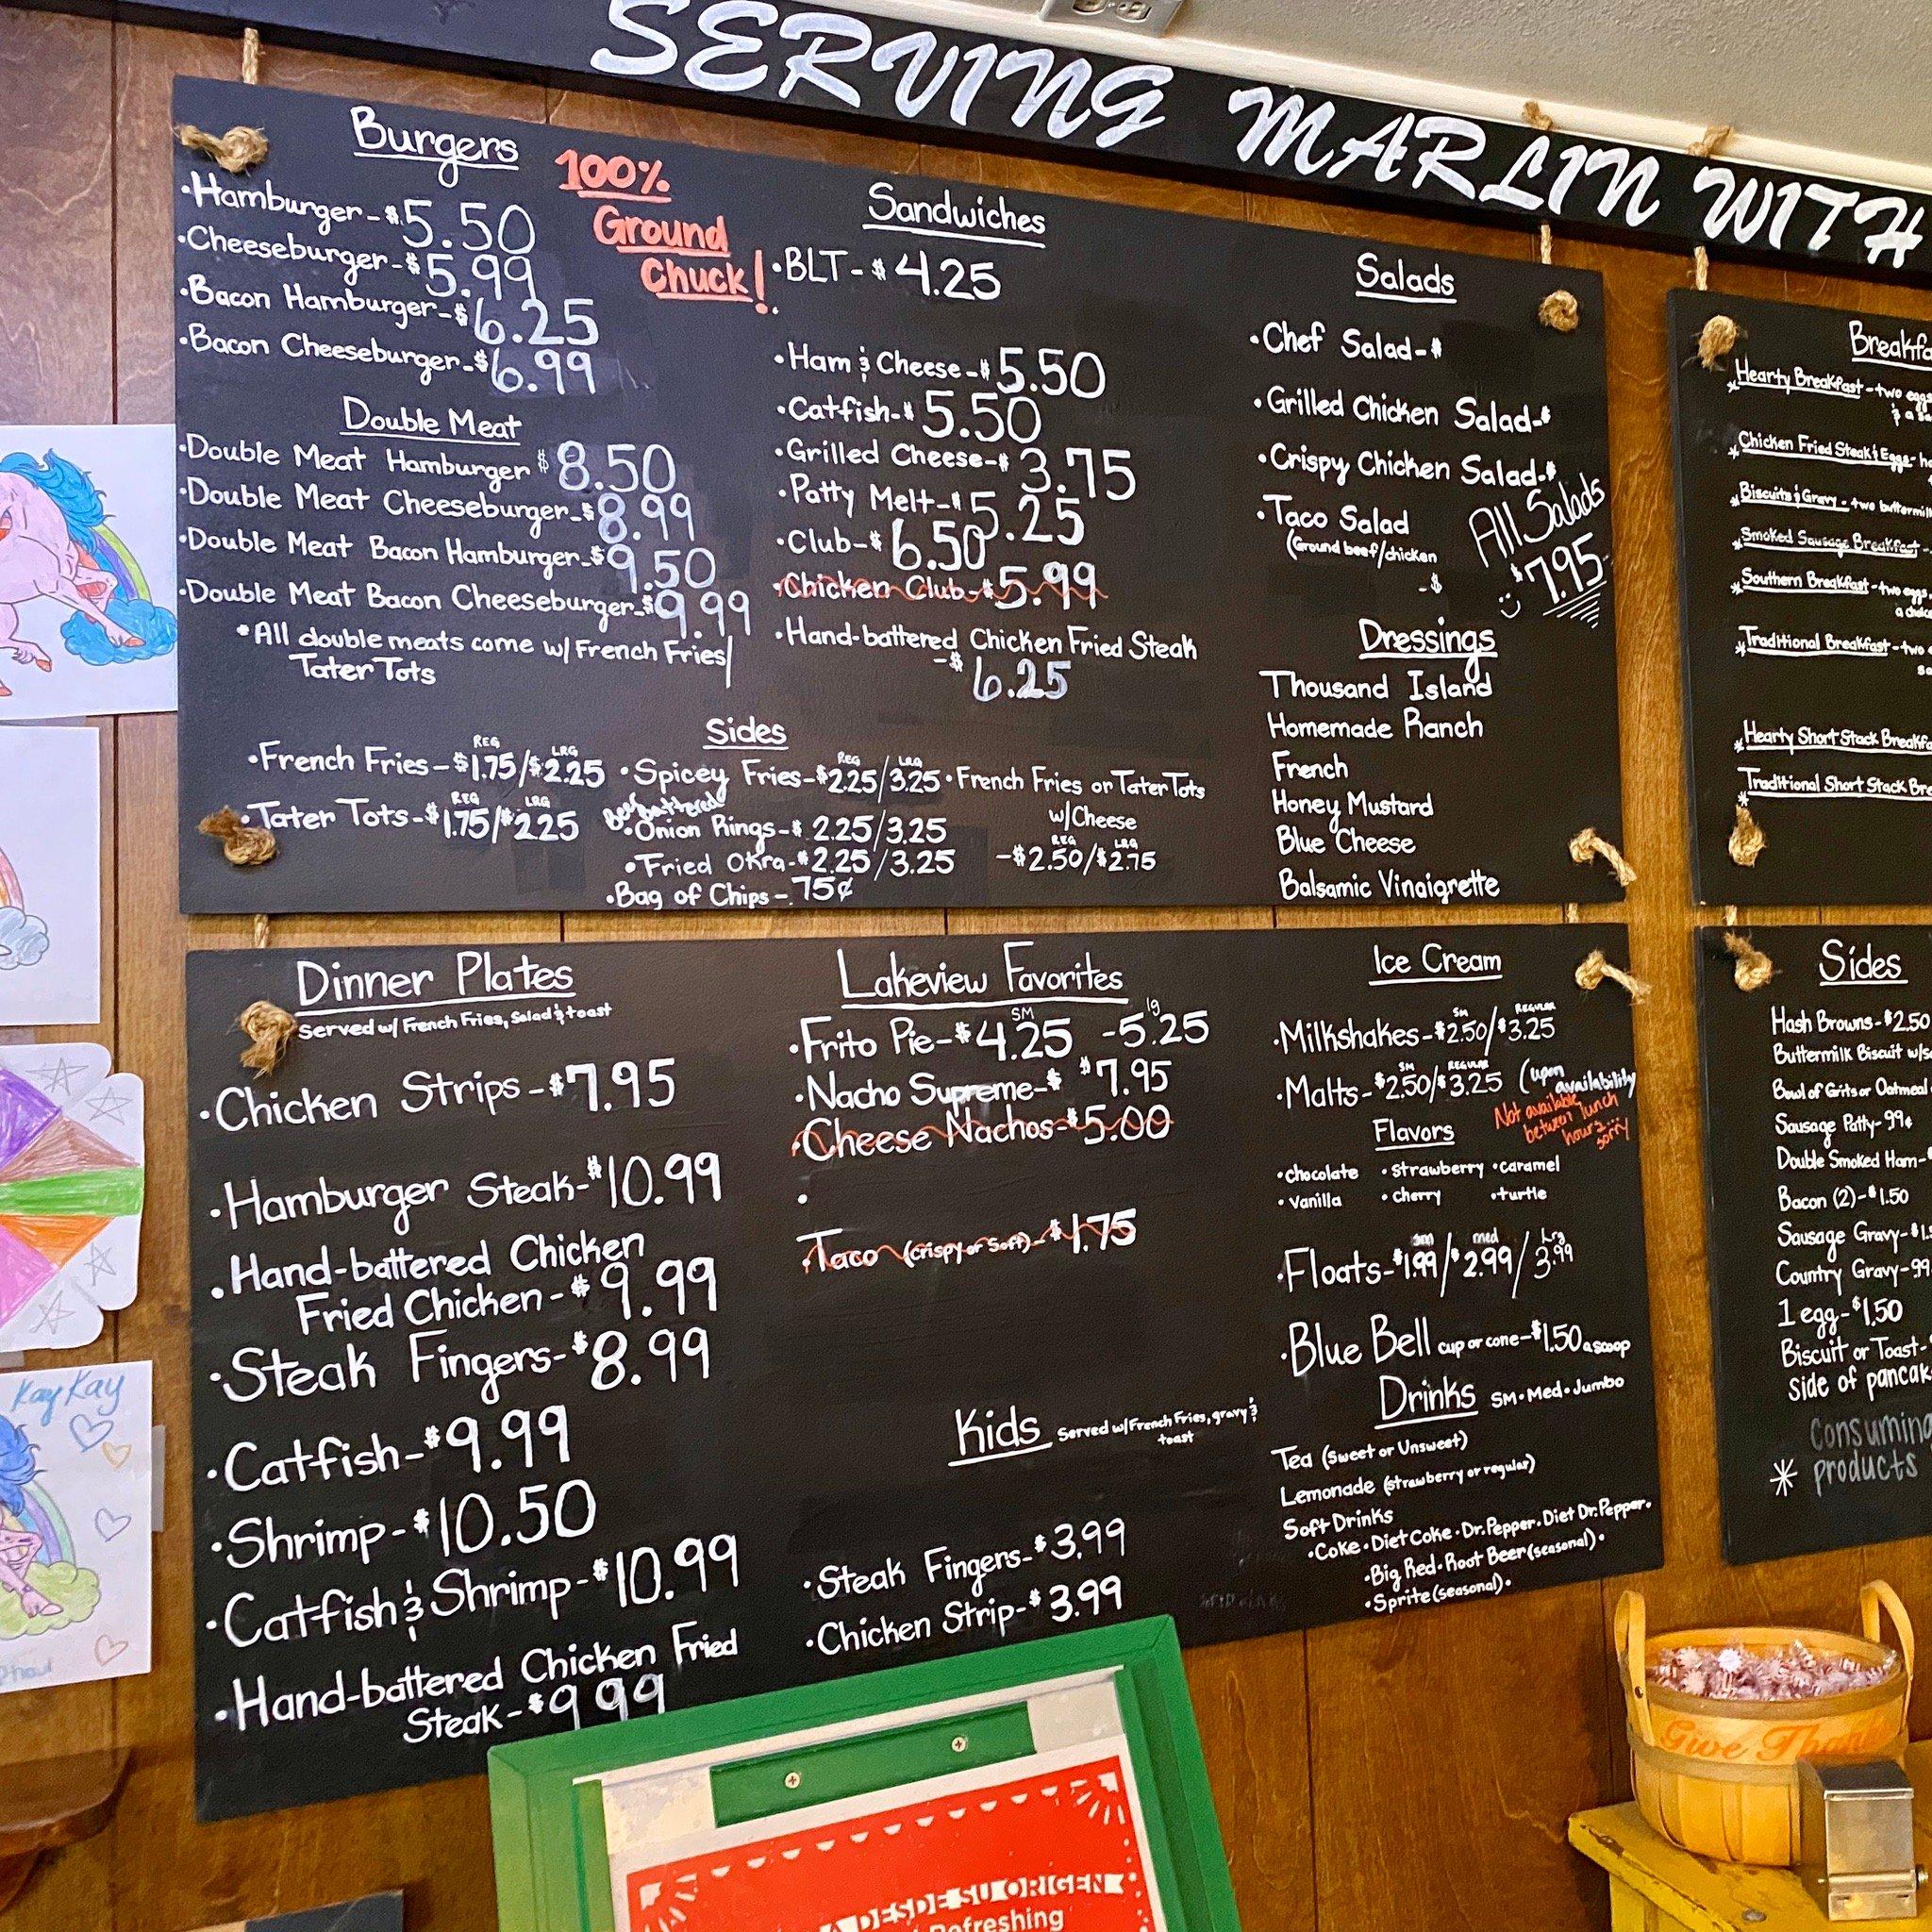 SERVING MARLIN WITH
Burgers
100%
Ground
Chuck!
•Hamburger-$5.50
•Cheeseburger-$5.99
•Bacon Hamburger-$6.25
•Bacon Cheeseburger-$6.99
Double Meat
•Double Meat Hamburger $8.50
•Double Meat Cheeseburger-$8.99
•Double Meat Bacon Hamburger-$9.50
•Double Meat Bacon Cheeseburger-$9.99
*All double meats come w/ French Fries/
Tater Tots
Sandwiches
•BLT-$4.25
•Ham & Cheese-$5.50
•Catfish-$5.50
•Grilled Cheese-$3.75
•Patty Melt-$5.25
•Club-$6.50
•Chicken Club-$5.99
•Hand-battered Chicken Fried Steak
-$6.25
Salads
•Chef Salad-$
•Grilled Chicken Salad-$
•Crispy Chicken Salad-$
•Taco Salad
(Ground beef/chicken
-$
All Salads
$7.95
Dressings
Thousand Island
Homemade Ranch
French
Honey Mustard
Blue Cheese
Balsamic Vinaigrette
Sides
REG LRG
•French Fries-$1.75/$2.25
REG LRG
•Tater Tots-$1.75/$2.25
REG LRG
•Spicey Fries-$2.25/3.25
Beer battered
•Onion Rings-$2.25/3.25
•Fried Okra-$2.25/3.25
•Bag of Chips-.75¢
•French Fries or Tater Tots
w/Cheese
REG LRG
-$2.50/$2.75
Dinner Plates
served w/ French Fries, Salad & toast
•Chicken Strips-$7.95
•Hamburger Steak-$10.99
•Hand-battered Chicken
Fried Chicken-$9.99
•Steak Fingers-$8.99
•Catfish-$9.99
•Shrimp-$10.50
•Catfish & Shrimp-$10.99
•Hand-battered Chicken Fried
Steak-$9.99
Lakeview Favorites
SM lg
•Frito Pie-$4.25 -5.25
•Nacho Supreme-$ $7.95
•Cheese Nachos-$5.00
•
•Taco (crispy or soft)-$1.75
Kids Served w/French Fries, gravy &
toast
•Steak Fingers-$3.99
•Chicken Strip-$3.99
Ice Cream
SM REGULAR
•Milkshakes-$2.50/$3.25
SM REGULAR
•Malts-$2.50/$3.25 (upon
availability)
Not available
between lunch
hours...
sorry
Flavors
•chocolate •strawberry •caramel
•vanilla •cherry •turtle
sm med Lrg
•Floats-$1.99/$2.99/3.99
•Blue Bell cup or cone-$1.50 a scoop
Drinks SM•Med•Jumbo
Tea (Sweet or Unsweet)
Lemonade (strawberry or regular)
Soft Drinks
•Coke•Diet Coke•Dr. Pepper•Diet Dr. Pepper•
•Big Red•Root Beer (seasonal)•
•Sprite (seasonal)•
Breakfa
*Hearty Breakfast-two eggs
& a
*Chicken Fried Steak & Eggs-
*Biscuits & Gravy-two buttermil
*Smoked Sausage Breakfast-
*Southern Breakfast-two eggs,
a choic
*Traditional Breakfast-two
*Hearty Short Stack Breakfa
*Traditional Short Stack Bre
Sides
Hash Browns-$2.50
Buttermilk Biscuit w/s
Bowl of Grits or Oatmeal
Sausage Patty-99¢
Double Smoked Ham-$
Bacon (2)-$1.50
Sausage Gravy-$1.
Country Gravy-99
1 egg-$1.50
Biscuit or Toast-
Side of pancak
Consuming
* products
Kay Kay
Give Thank
A DESDE SU ORIGEN
Refreshing